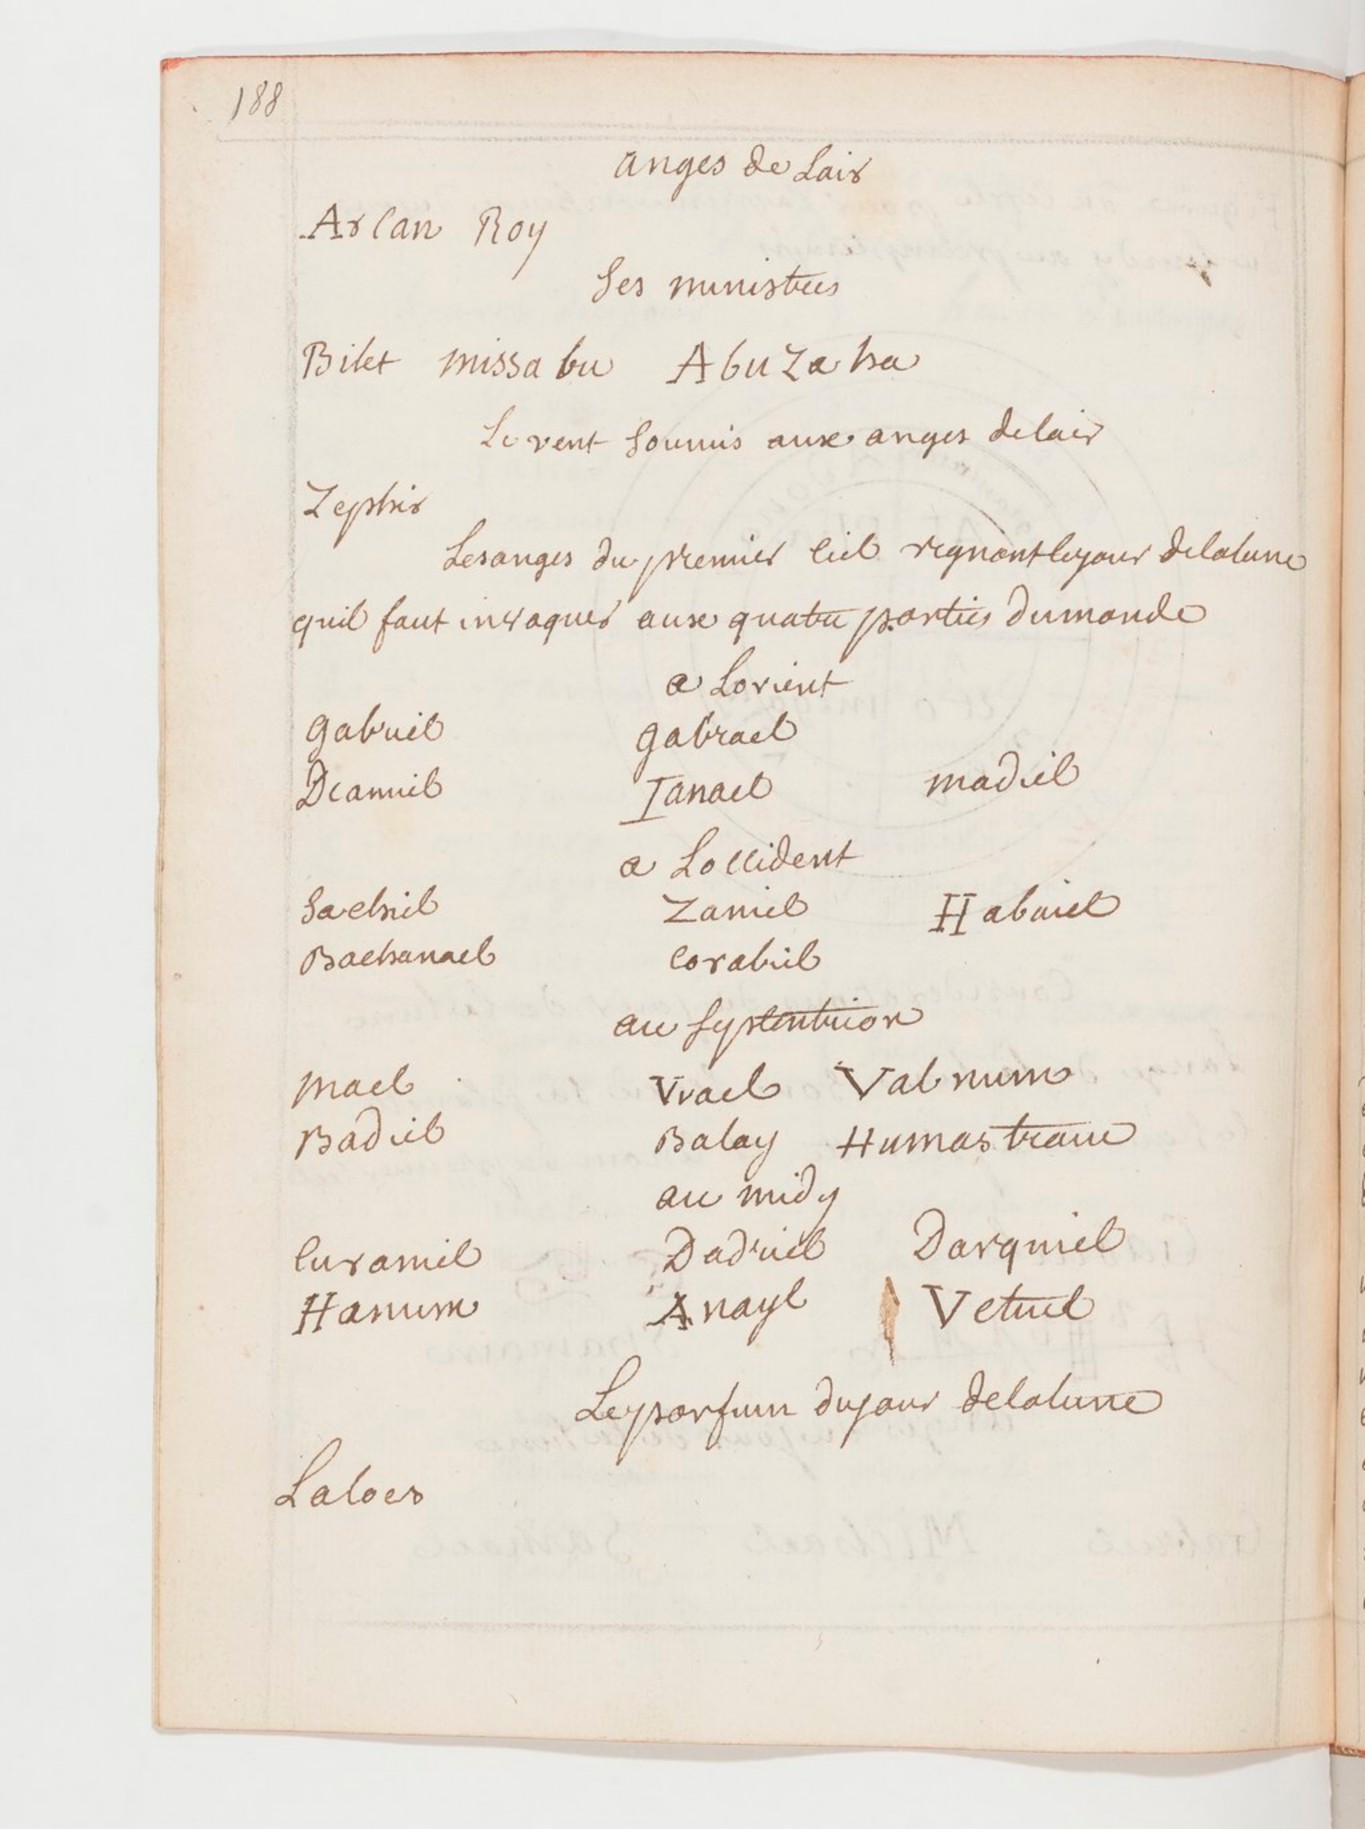 188
anges de Lair
Arcan Roy
Ses ministres
Bilet missabu Abuzaha
Le vent soumis aux anges delair
Zephir
Lesanges du premier ciel regnant lejour delalune
quil faut invoquer aux quatre parties dumonde
a Lorient
gabriel gabrael
Deamiel Ianael madiel
a Loccident
Sachiel Zaniel Habaiel
Bachanael Corabiel
au Septentrion
mael Vrael Valnum
Badiel Balay Humastraue
au midy
Curaniel Dadriel Darquiel
Hanum Anayl Vetuel
Leparfum dujour delalune
Laloes